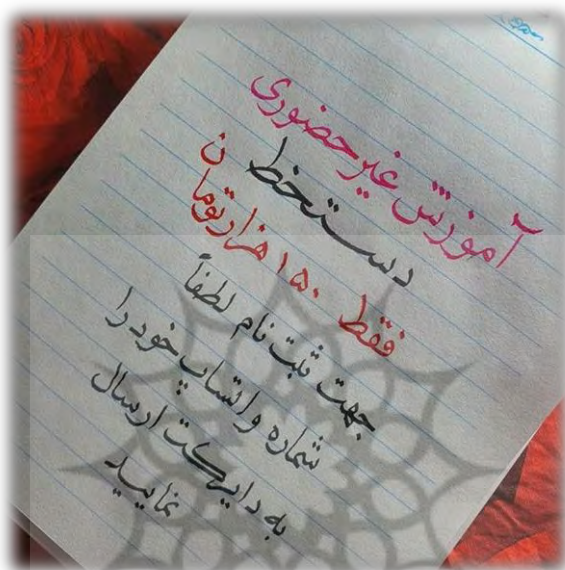 آموزش غیر حضوری
دستخط
فقط ۱۵۰ هزار تومان
جهت ثبت نام لطفاً
شماره واتساپ خود را
به دایرکت ارسال
نمایید